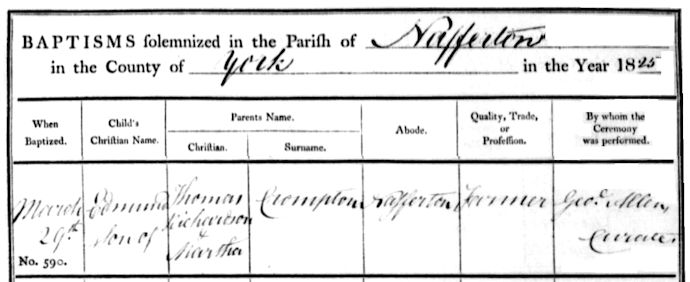 BAPTISMS solemnized in the Parish of Nafferton
in the County of York in the Year 1825
When Baptized. Child's Christian Name. Parents Name. Abode. Quality, Trade, or Profession. By whom the Ceremony was performed.
Christian. Surname.
March Edmund Thomas Crompton Nafferton Farmer Geo. Allen
29th son of Richardson Curate
& Martha
No. 590.